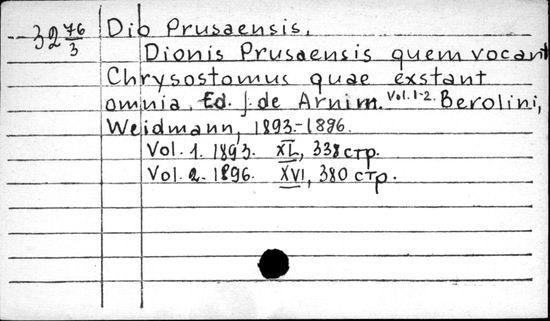 32 76/3 Dio Prusaensis.
Dionis Prusaensis quem vocant
Chrysostomus quae exstant
omnia. Ed. J. de Arnim. Vol. 1-2. Berolini,
Weidmann, 1893-1896.
Vol. 1. 1893. XL, 338 стр.
Vol. 2. 1896. XVI, 380 стр.